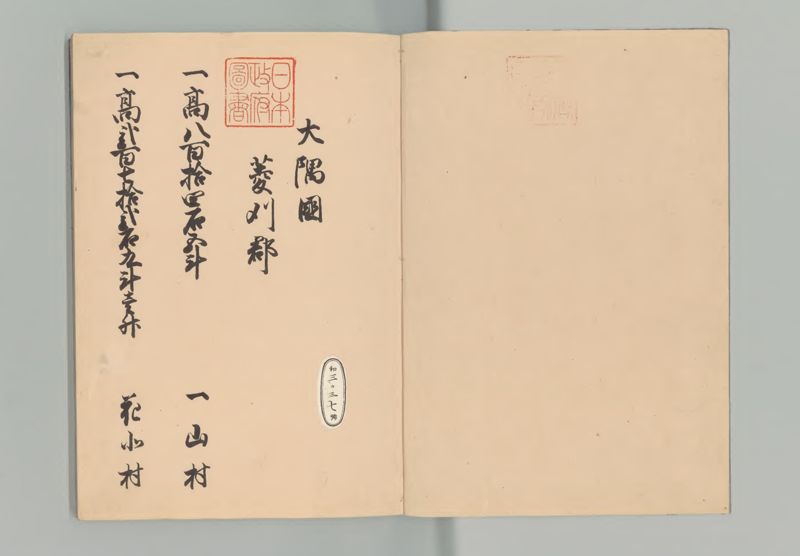 大隅國
菱刈郡
日本政府圖書
一高八百拾四石五斗 一山村
一高弐百七拾弐石九斗壱升 花北村